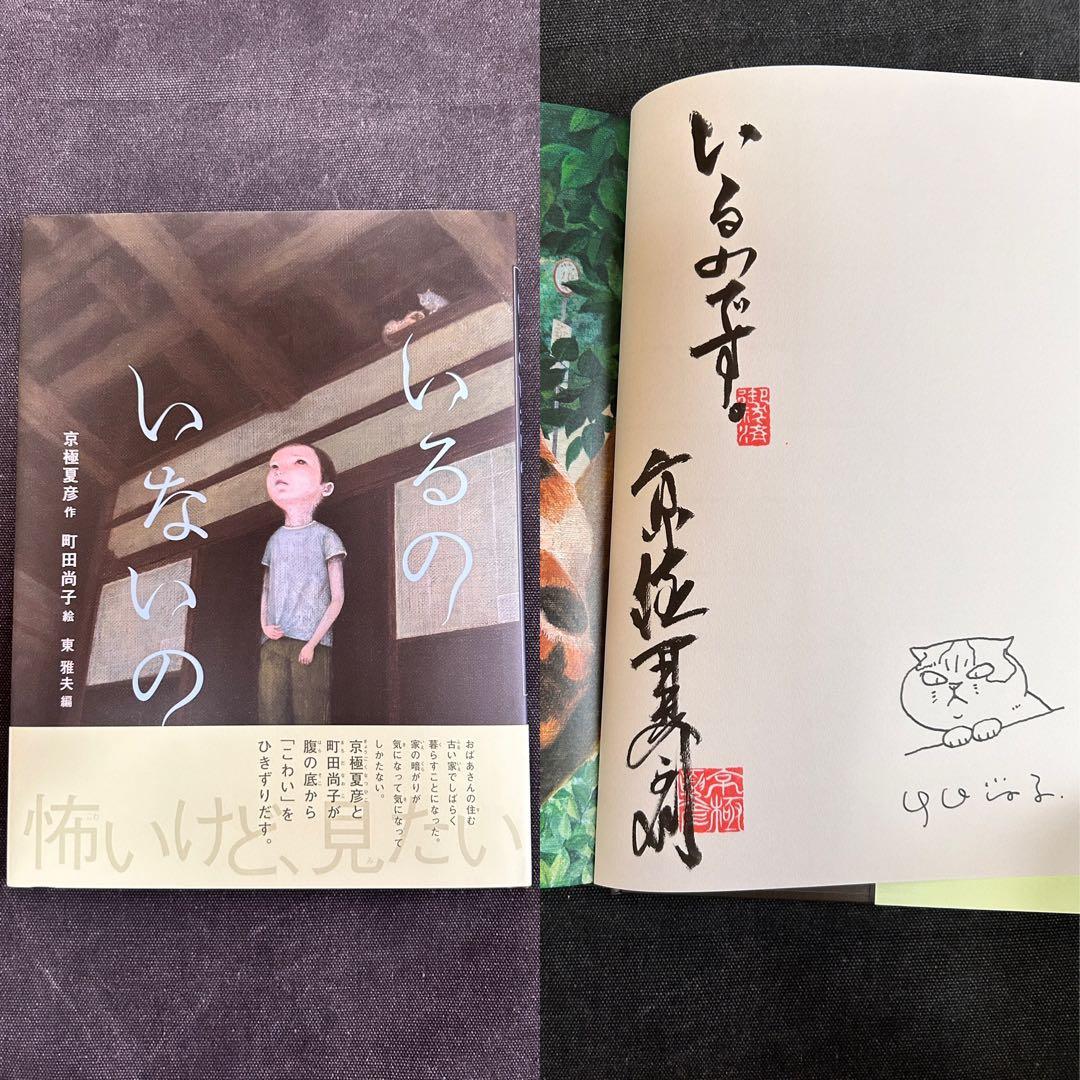 いるの
いないの
京極夏彦 作 町田尚子 絵 東 雅夫 編
おばあさんの住む
古い家でしばらく
暮らすことになった。
家の暗がりが
気になって気になって
しかたない。
京極夏彦と
町田尚子が
腹の底から
「こわい」を
ひきずりだす。
怖いけど、見たい
いるのです。
京極夏彦
京極